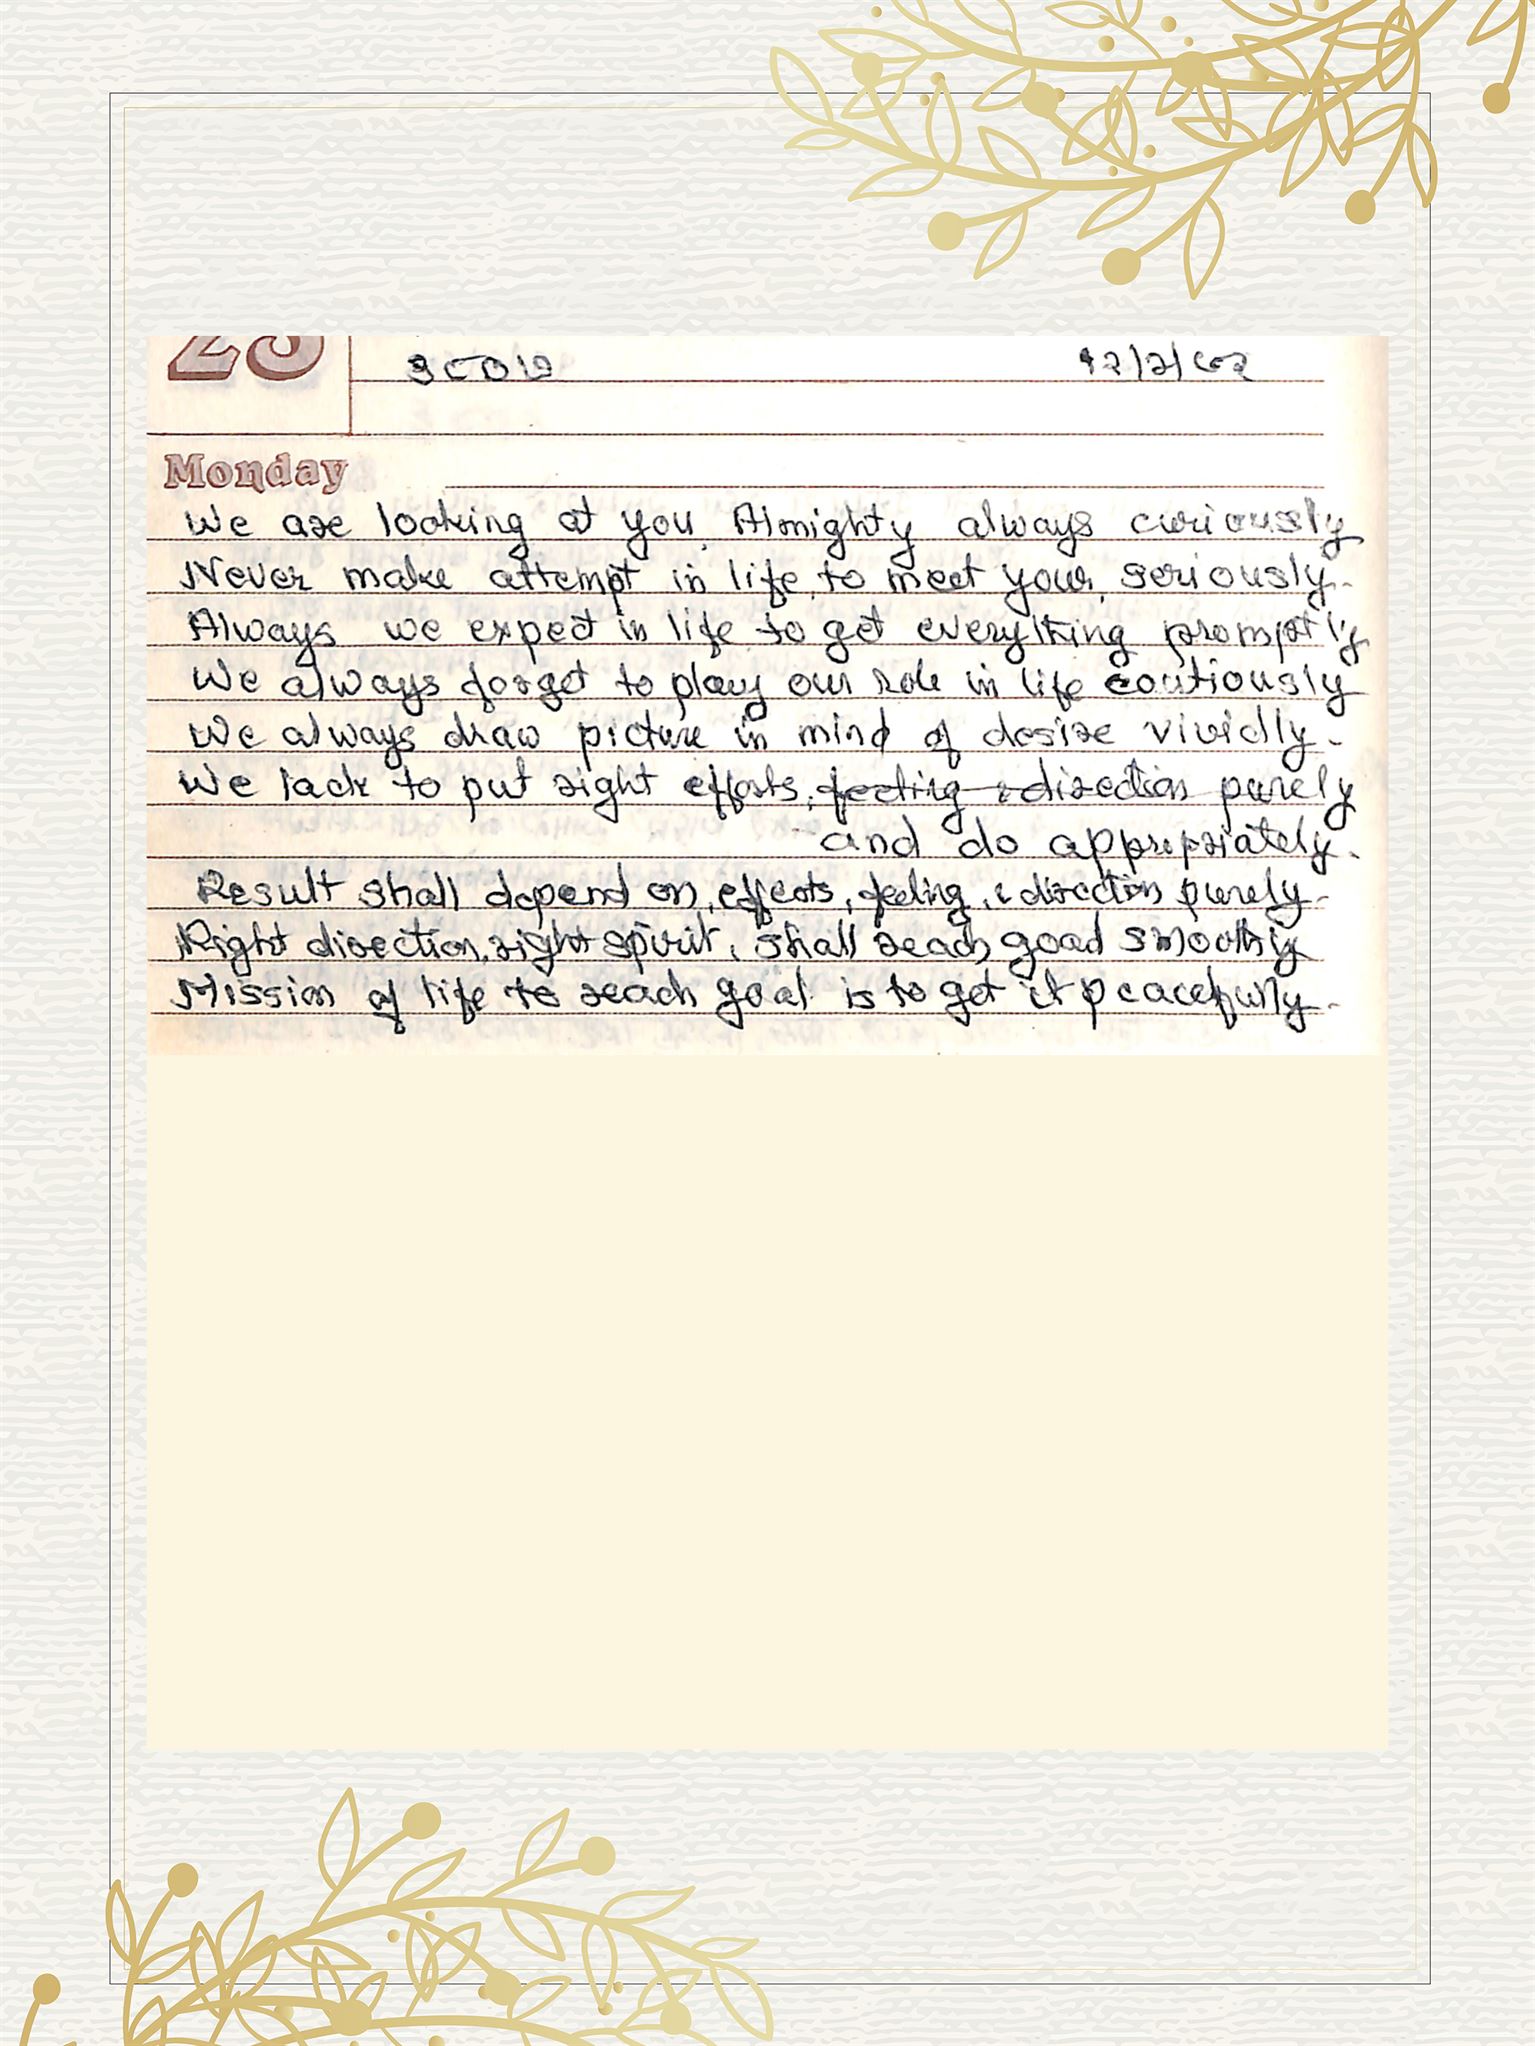 We are looking at you, Almighty always curiously
Never make attempt in life, to meet your, seriously.
Always we expect in life to get everything promptly
We always forget to play our role in life coutiously
We always draw picture in mind of desire vividly.
We lack to put right efforts, feeling & direction purely
and do appropriately.
Result shall depend on, effects, feeling, & direction purely.
Right direction, right spirit, shall reach goad smoothly
Mission of life to reach goal is to get it peacefully.
Monday